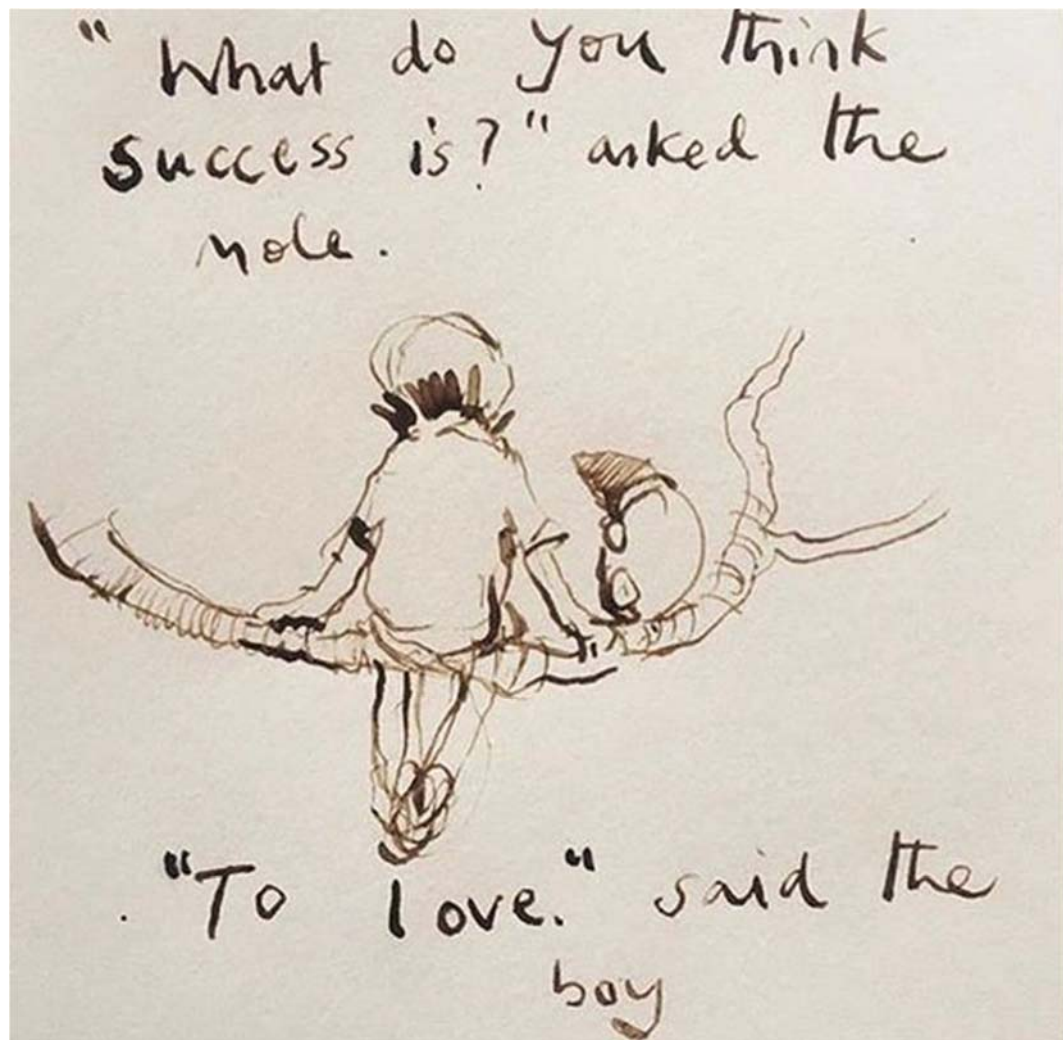 "What do you think
success is?" asked the
mole.
"To love." said the
boy